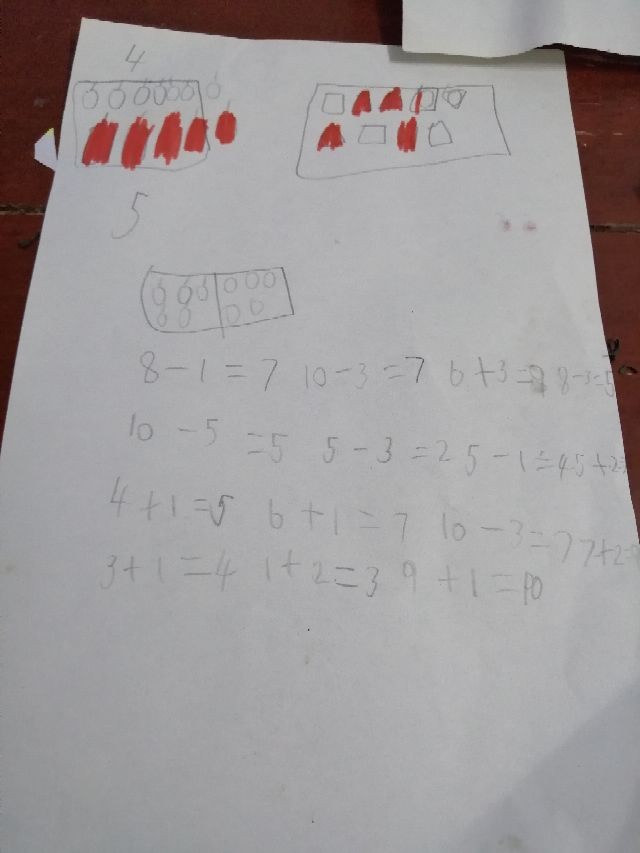 4
5
8-1=7 10-3=7 6+3= 8-3=5
10-5=5 5-3=2 5-1=4 5+2=
4+1=5 6+1=7 10-3=7 7+2=
3+1=4 1+2=3 9+1=10